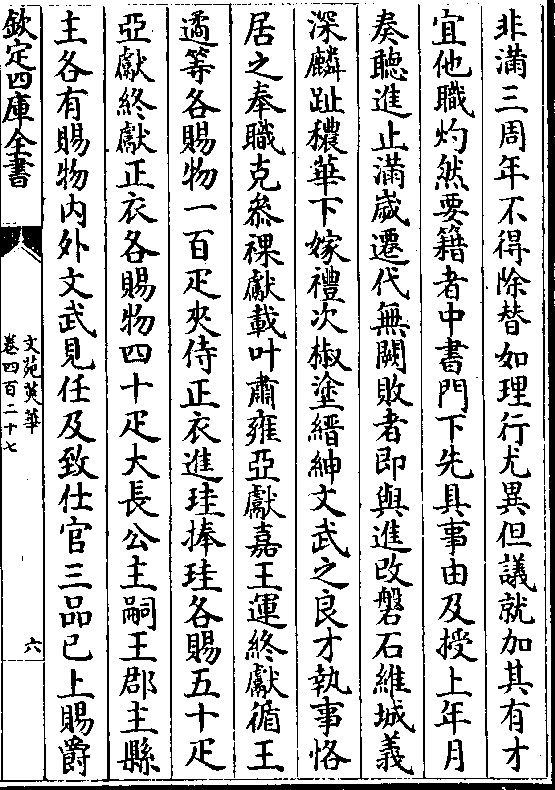 非滿三周年不得除替如理行尤異但議就加其有才
宜他職灼然要籍者中書門下先具事由及授上年月
奏聽進止滿嵗遷代無闕敗者即與進改磐石維城義
深麟趾穠華下嫁禮次椒塗縉紳文武之良才執事恪
居之奉職克叅祼獻載叶肅雍亞獻嘉王運終獻循王
遹等各賜物一百疋夾侍正衣進珪捧珪各賜五十疋
亞獻終獻正衣各賜物四十疋大長公主嗣王郡主縣
主各有賜物内外文武見任及致仕官三品已上賜爵
欽定四庫全書
文苑英華
卷四百二十七
六